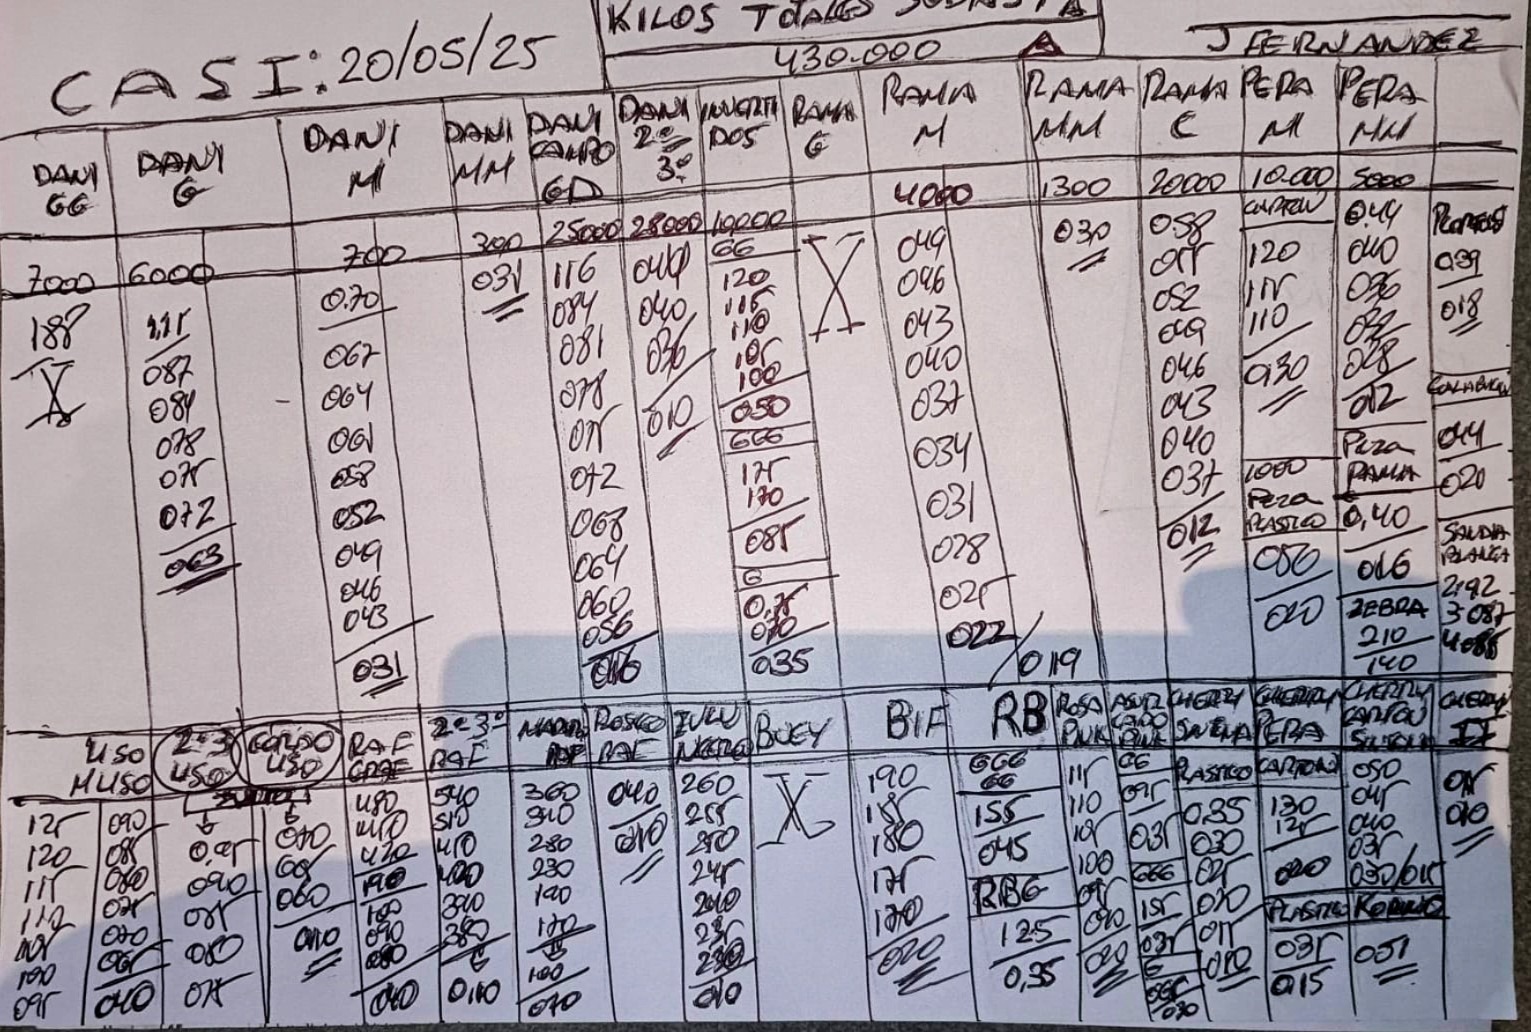 KILOS TOTALES SUBASTA
430.000
J FERNANDEZ
CASI: 20/05/25
DANI GG
7000
188
X
DANI G
6000
115
087
084
078
075
072
063
DANI M
700
0.70
067
064
061
058
052
049
046
043
031
DANI MM
300
031
DANI CAMPO GD
25000
116
084
081
078
075
072
068
064
060
056
016
DANI 2ª 3ª
28000
044
040
036
010
INVERTI DOS
10000
GG
120
115
110
105
100
050
GGG
175
170
085
G
0,75
070
035
RAMA G
X
RAMA M
4000
049
046
043
040
037
034
031
028
025
022/019
RAMA MM
1300
030
RAMA C
20000
058
055
052
049
046
043
040
037
012
PERA M
10.000
CARTON
120
115
110
030
1000
PERA
PLASTICO
020
PERA MM
5000
0.44
040
036
032
028
012
PERA
RAMA
0,40
016
ZEBRA
210
140
039
018
044
020
SANDIA
BLANCA
2-92
3-087
4-085
USO
MUSO
125
120
115
110
105
100
095
090
085
080
075
070
065
040
2ª-3ª
USO
0,95
090
085
080
075
CORDO
USO
070
065
060
010
RAF
GRAF
480
450
420
190
100
090
080
040
2ª-3ª
RAF
540
510
450
420
390
380
G
0,40
360
340
280
230
190
170
100
070
ROSCO
RAF
040
010
260
255
250
245
240
235
230
010
BUEY
X
BIF
190
185
180
175
170
020
RB
GGG
GG
155
045
RBG
125
0,35
ROSA
PINK
115
110
105
100
095
090
020
PINK
GG
095
035
GGG
155
035
G
065
030
CHERRY
PLASTICO
0,35
030
025
020
015
010
CHERRY
PERA
CARTON
130
125
020
PLASTICO
035
015
CHERRY
CARTON
050
045
040
035
030/015
051
CHERRY
015
010